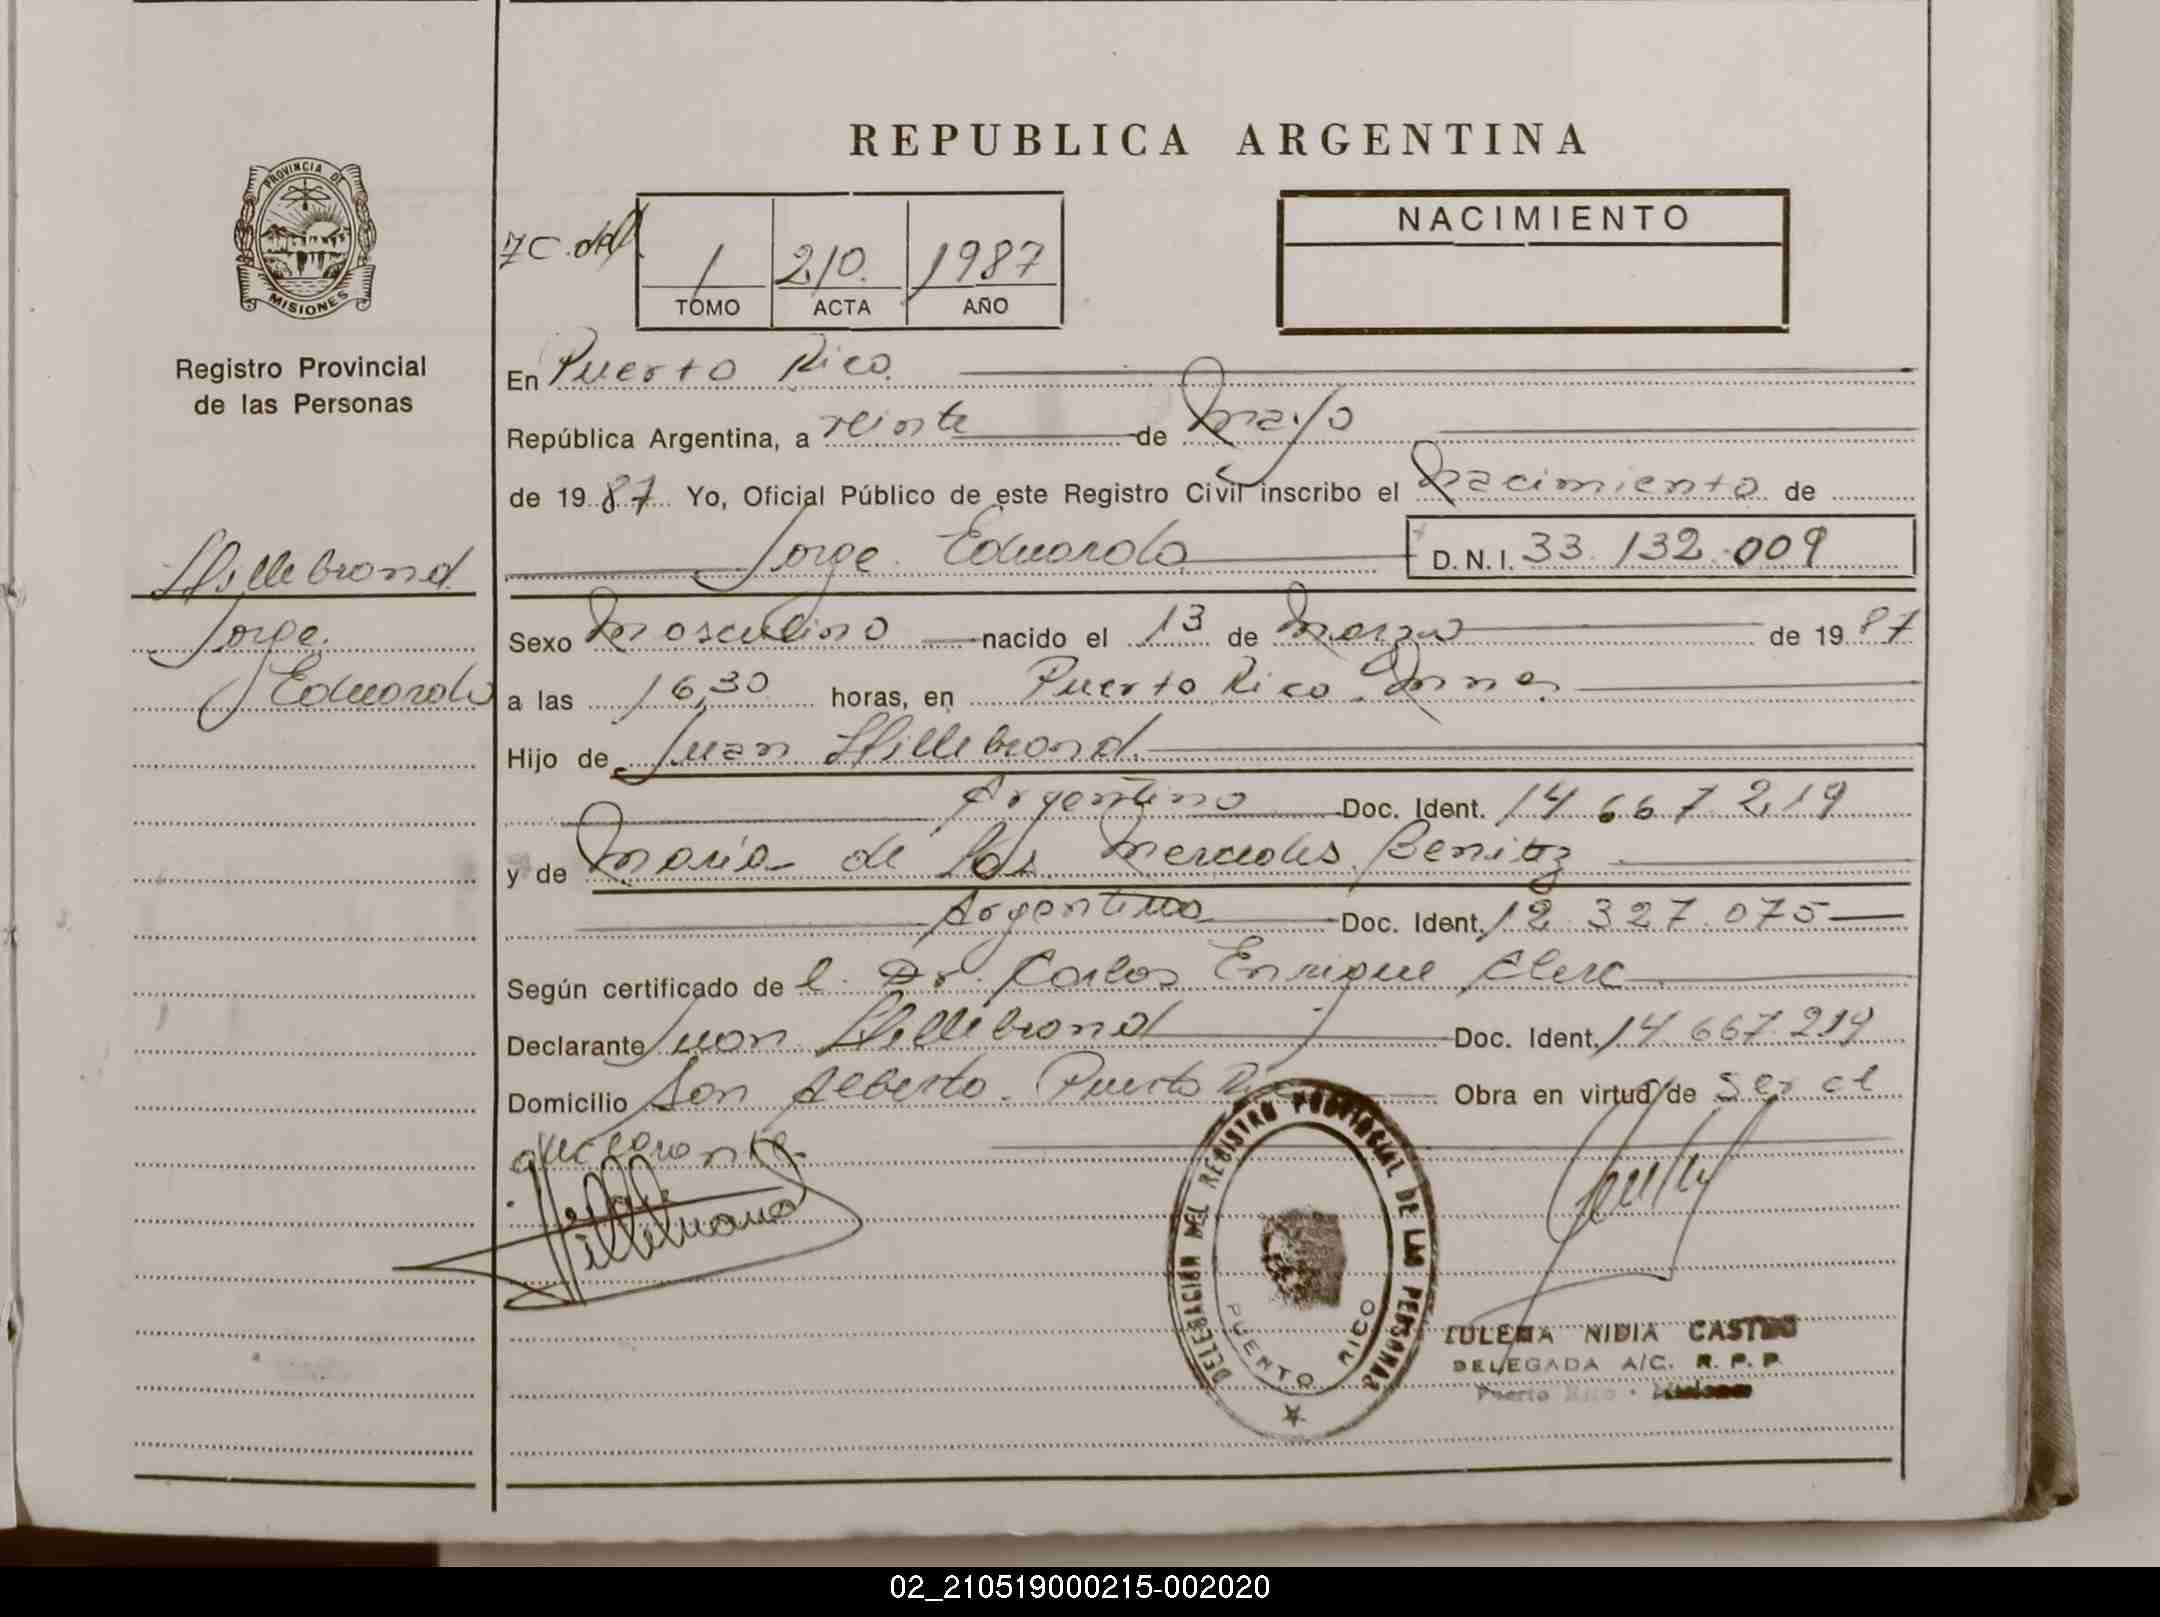 REPUBLICA ARGENTINA
PROVINCIA DE
MISIONES
Registro Provincial
de las Personas
Hillebrand
Jorge
Eduardo
1 210. 1987
TOMO ACTA AÑO
NACIMIENTO
En Puerto Rico
República Argentina, a veinte de Mayo
de 1987 Yo, Oficial Público de este Registro Civil inscribo el Nacimiento de
Jorge Eduardo D.N.I. 33.132.009
Sexo Masculino nacido el 13 de Marzo de 1987
a las 16,30 horas, en Puerto Rico Mnes.
Hijo de Juan Hillebrand
Argentino Doc. Ident. 14.667.219
y de María de las Mercedes Benitez
Argentina Doc. Ident. 12.327.075
Según certificado de l. Dr. Carlos Enrique Clerc
Declarante Juan Hillebrand Doc. Ident. 14.667.219
Domicilio San Alberto. Puerto Rico Obra en virtud de ser el
DELEGACIÓN DEL REGISTRO PROVINCIAL DE LAS PERSONAS
PUERTO RICO
NIDIA CASTRO
DELEGADA A/C. R. P. P.
Puerto Rico - Misiones
02_210519000215-002020